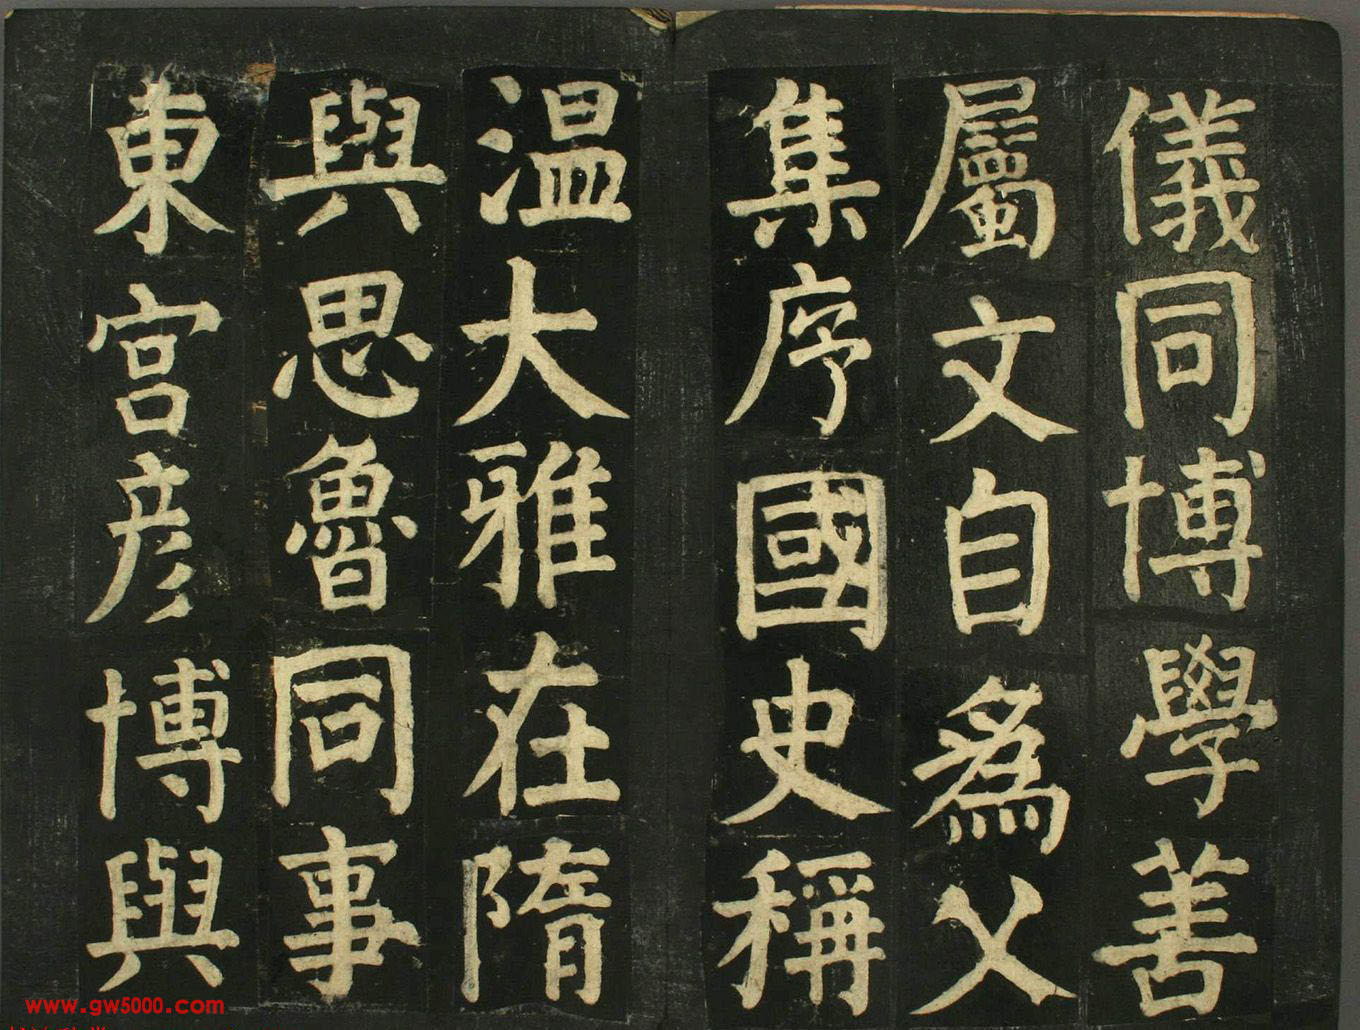 儀同博學善
屬文自為父
集序國史稱
温大雅在隋
與思魯同事
東宮彥博與
www.gw5000.com